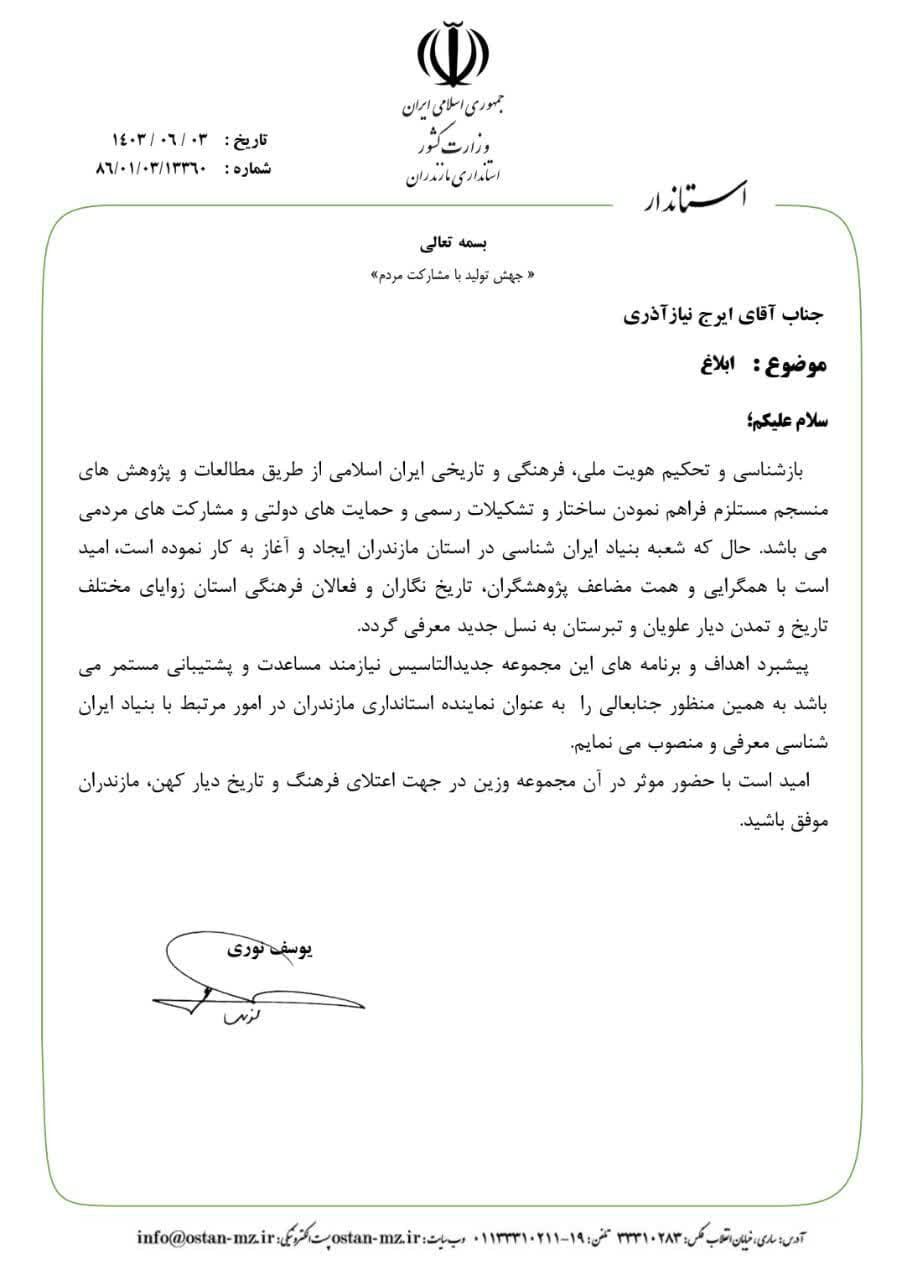 جمهوری اسلامی ایران
وزارت کشور
استانداری مازندران
تاریخ : ۱۴۰۳/۰۶/۰۳
شماره : ۸۶/۰۱/۰۳/۱۳۳۶۰
استاندار
بسمه تعالی
« جهش تولید با مشارکت مردم»
جناب آقای ایرج نیازآذری
موضوع : ابلاغ
سلام علیکم؛
بازشناسی و تحکیم هویت ملی، فرهنگی و تاریخی ایران اسلامی از طریق مطالعات و پژوهش های
منسجم مستلزم فراهم نمودن ساختار و تشکیلات رسمی و حمایت های دولتی و مشارکت های مردمی
می باشد. حال که شعبه بنیاد ایران شناسی در استان مازندران ایجاد و آغاز به کار نموده است، امید
است با همگرایی و همت مضاعف پژوهشگران، تاریخ نگاران و فعالان فرهنگی استان زوایای مختلف
تاریخ و تمدن دیار علویان و تبرستان به نسل جدید معرفی گردد.
پیشبرد اهداف و برنامه های این مجموعه جدیدالتاسیس نیازمند مساعدت و پشتیبانی مستمر می
باشد به همین منظور جنابعالی را به عنوان نماینده استانداری مازندران در امور مرتبط با بنیاد ایران
شناسی معرفی و منصوب می نمایم.
امید است با حضور موثر در آن مجموعه وزین در جهت اعتلای فرهنگ و تاریخ دیار کهن، مازندران
موفق باشید.
یوسف نوری
آدرس: ساری، خیابان انقلاب فکس: ۳۳۳۱۰۲۸۳ تلفن: ۱۹-۰۱۱۳۳۳۱۰۲۱۱ وب سایت: ostan-mz.ir پست الکترونیکی: info@ostan-mz.ir